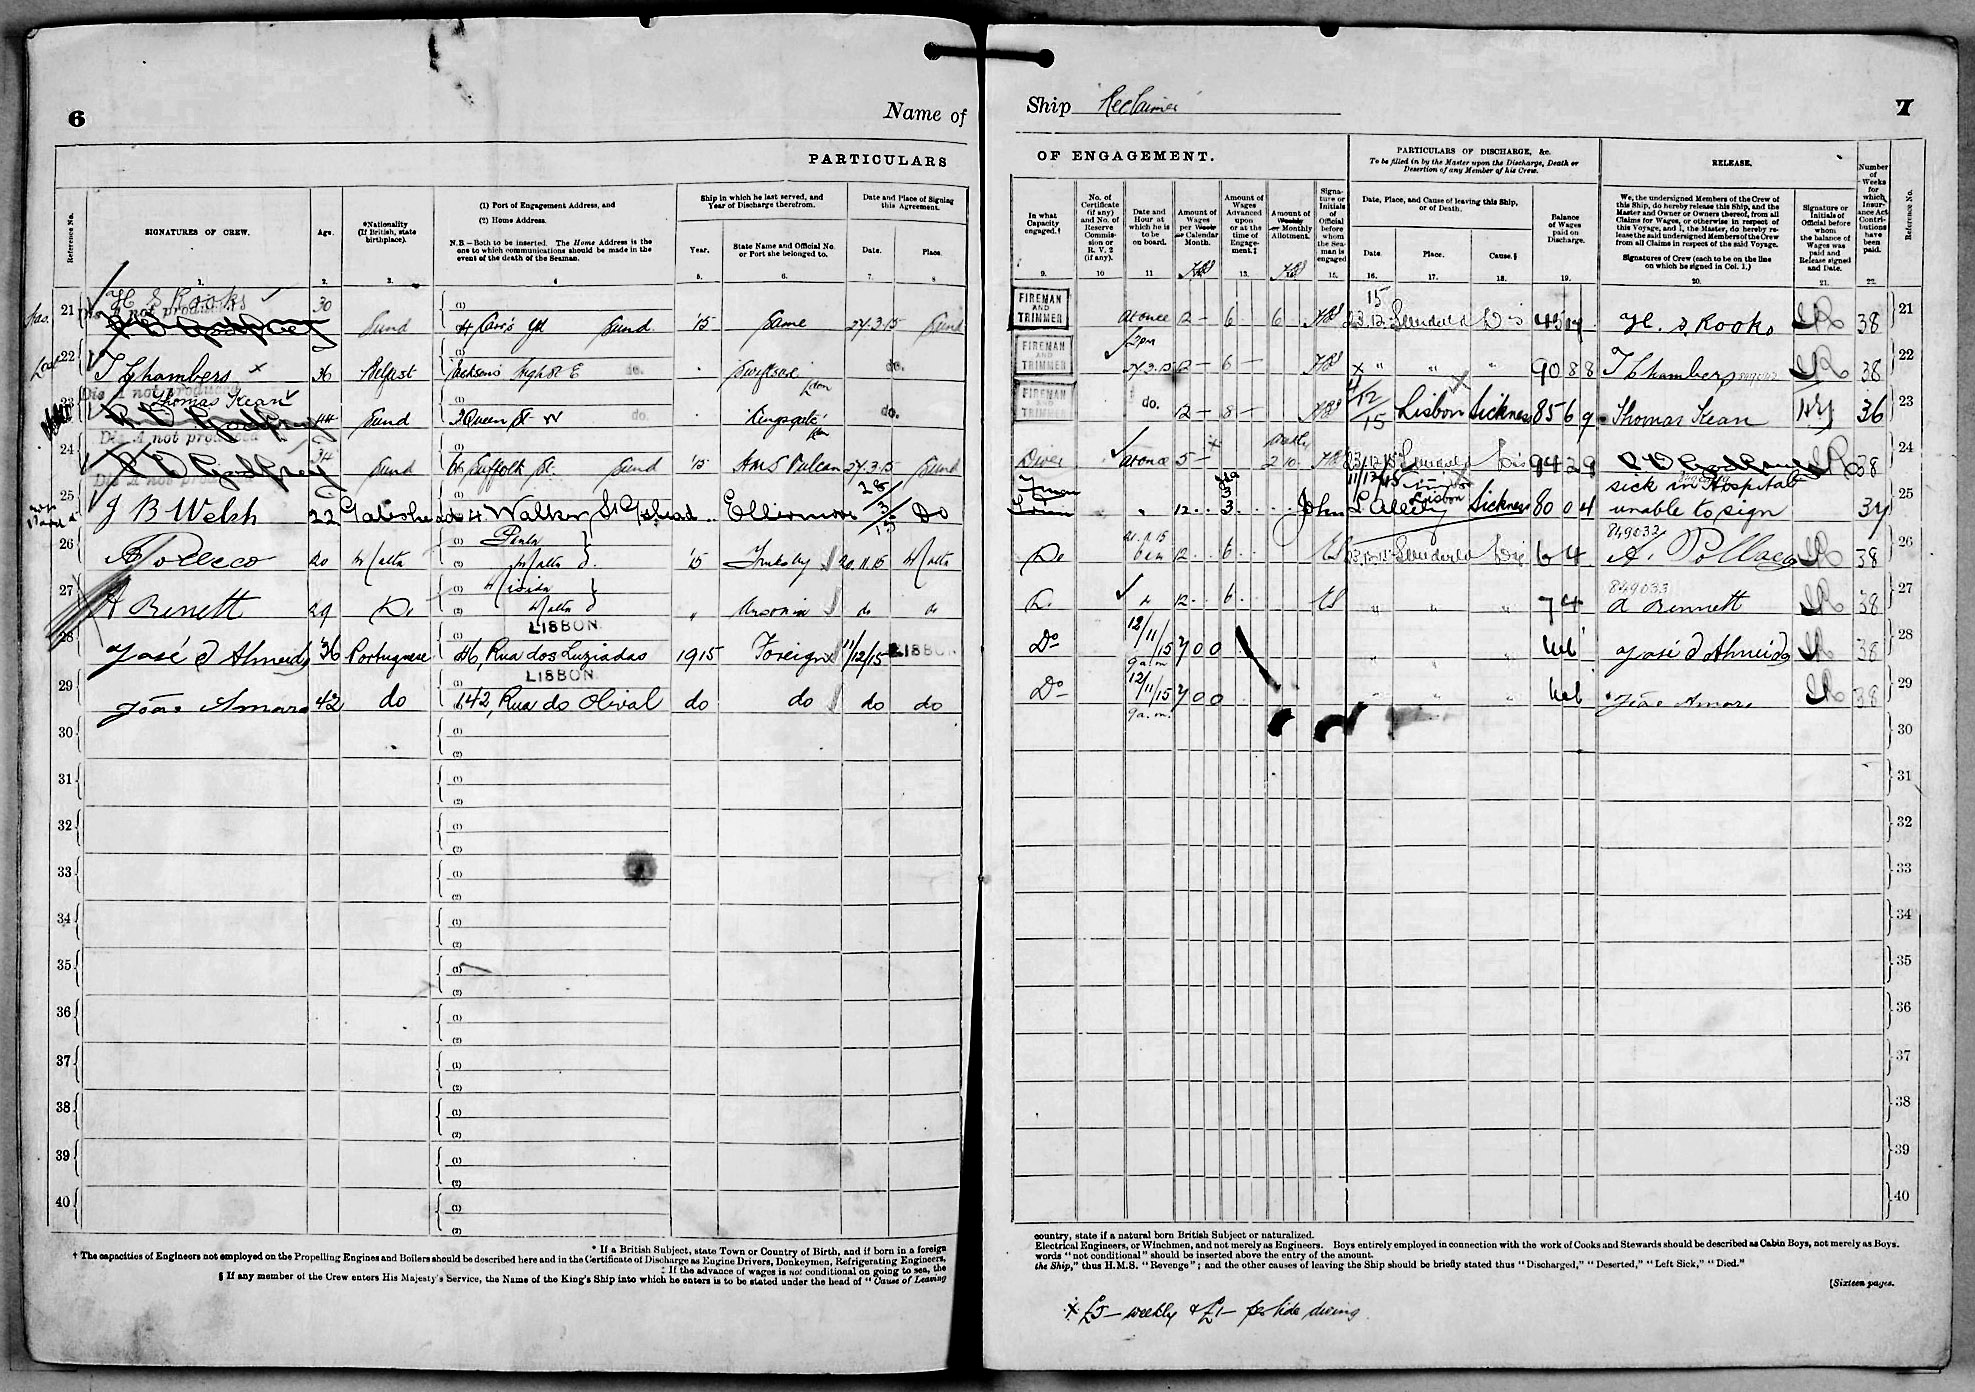 6
Name of
Ship Reclaimer
7
PARTICULARS
OF ENGAGEMENT.
PARTICULARS OF DISCHARGE, &c.
To be filled in by the Master upon the Discharge, Death or
Desertion of any Member of his Crew.
RELEASE.
Reference No.
SIGNATURES OF CREW.
Age.
*Nationality
(If British, state
birthplace).
(1) Port of Engagement Address, and
(2) Home Address.
N.B.—Both to be inserted. The Home Address is the
one to which communications should be made in the
event of the death of the Seaman.
Ship in which he last served, and
Year of Discharge therefrom.
Year.
State Name and Official No.
or Port she belonged to.
Date and Place of Signing
this Agreement.
Date.
Place.
In what
Capacity
engaged.†
No. of
Certificate
(if any)
and No. of
Reserve
Commis-
sion or
R. V. 2
(if any).
Date and
Hour at
which he is
to be
on board.
Amount of
Wages
per Week
or Calendar
Month.
Amount of
Wages
Advanced
upon
or at the
time of
Engage-
ment.‡
Amount of
Weekly
or Monthly
Allotment.
Signa-
ture or
Initials
of
Official
before
whom
the Sea-
man is
engaged
Date, Place, and Cause of leaving this Ship,
or of Death.
Date.
Place.
Cause.§
Balance
of Wages
paid on
Discharge.
We, the undersigned Members of the Crew of
this Ship, do hereby release this Ship, and the
Master and Owner or Owners thereof, from all
Claims for Wages, or otherwise in respect of
this Voyage, and I, the Master, do hereby re-
lease the said undersigned Members of the Crew
from all Claims in respect of the said Voyage.
Signatures of Crew (each to be on the line
on which he signed in Col. 1.)
Signature or
Initials of
Official before
whom
the balance of
Wages was
paid and
Release signed
and Date.
Number
of
Weeks
for
which
Insur-
ance Act
Contri-
butions
have
been
paid.
Reference No.
1. 2. 3. 4 5. 6. 7. 8
9. 10 11 13. 15. 16. 17. 18. 19. 20. 21. 22.
21 H. S. Rooks 30 Sund Sund '15 Same 27.3.15 Sund
Dis A not produced
FIREMAN AND TRIMMER at once 12 - 6 6 15 23.12 Sunderld Dis H. S. Rooks 38 21
22 T Chambers x 36 Belfast do. Swiftsure do.
FIREMAN AND TRIMMER 27.3.15 12 - 6 - " " " 90 8 8 T Chambers 38 22
Dis A not produced
23 Thomas Kean 44 Sund 3 Queen St W do. Kingsgate Ldn do.
FIREMAN AND TRIMMER do. 12 - 8 - 12/15 Lisbon Sickness 85 6 9 Thomas Kean 36 23
Dis A not produced
24 R D Godfrey 34 Sund Suffolk St. Sund '15 HMS Vulcan 27.3.15 Sund
Diver at once 5 - x weekly 2 10 23.12.15 Sunderld Dis 94 2 9 38 24
Dis A not produced
25 J B Welsh 22 Gateshead 4 Walker St G/shead .. Elliermore 28/3/15 Do
Fman Trim " 12 .. 3 11/12/15 Lisbon Sickness 80 0 4 sick in Hospital
unable to sign 37 25
26 20 Malta Malta '15 20.11.15 Malta
Do 12 .. 6 .. 23.12.15 Sunderld Dis 6 4 849032 38 26
27 A Benett 29 Do Malta " do do
Do " 12 .. 6 " " " 7 4 849033 A Bennett 38 27
28 José d'Almeida 36 Portuguese LISBON 46, Rua dos Luziadas 1915 Foreign 11/12/15 LISBON
Do 12/11/15 9 a.m. 7 0 0 " " " Nil José d'Almeida 38 28
29 João Amaro 42 do LISBON 142, Rua do Olival do do do do
Do 12/11/15 9 a.m. 7 0 0 " " " Nil João Amaro 38 29
30 (1) (2) 30
31 (1) (2) 31
32 (1) (2) 32
33 (1) (2) 33
34 (1) (2) 34
35 (1) (2) 35
36 (1) (2) 36
37 (1) (2) 37
38 (1) (2) 38
39 (1) (2) 39
40 (1) (2) 40
* If a British Subject, state Town or Country of Birth, and if born in a foreign
country, state if a natural born British Subject or naturalized.
† The capacities of Engineers not employed on the Propelling Engines and Boilers should be described here and in the Certificate of Discharge as Engine Drivers, Donkeymen, Refrigerating Engineers,
Electrical Engineers, or Winchmen, and not merely as Engineers. Boys entirely employed in connection with the work of Cooks and Stewards should be described as Cabin Boys, not merely as Boys.
‡ If the advance of wages is not conditional on going to sea, the
words "not conditional" should be inserted above the entry of the amount.
§ If any member of the Crew enters His Majesty's Service, the Name of the King's Ship into which he enters is to be stated under the head of "Cause of Leaving
the Ship," thus H.M.S. "Revenge"; and the other causes of leaving the Ship should be briefly stated thus "Discharged," "Deserted," "Left Sick," "Died."
[Sixteen pages.
x £5 - weekly & £1 - per tide diving